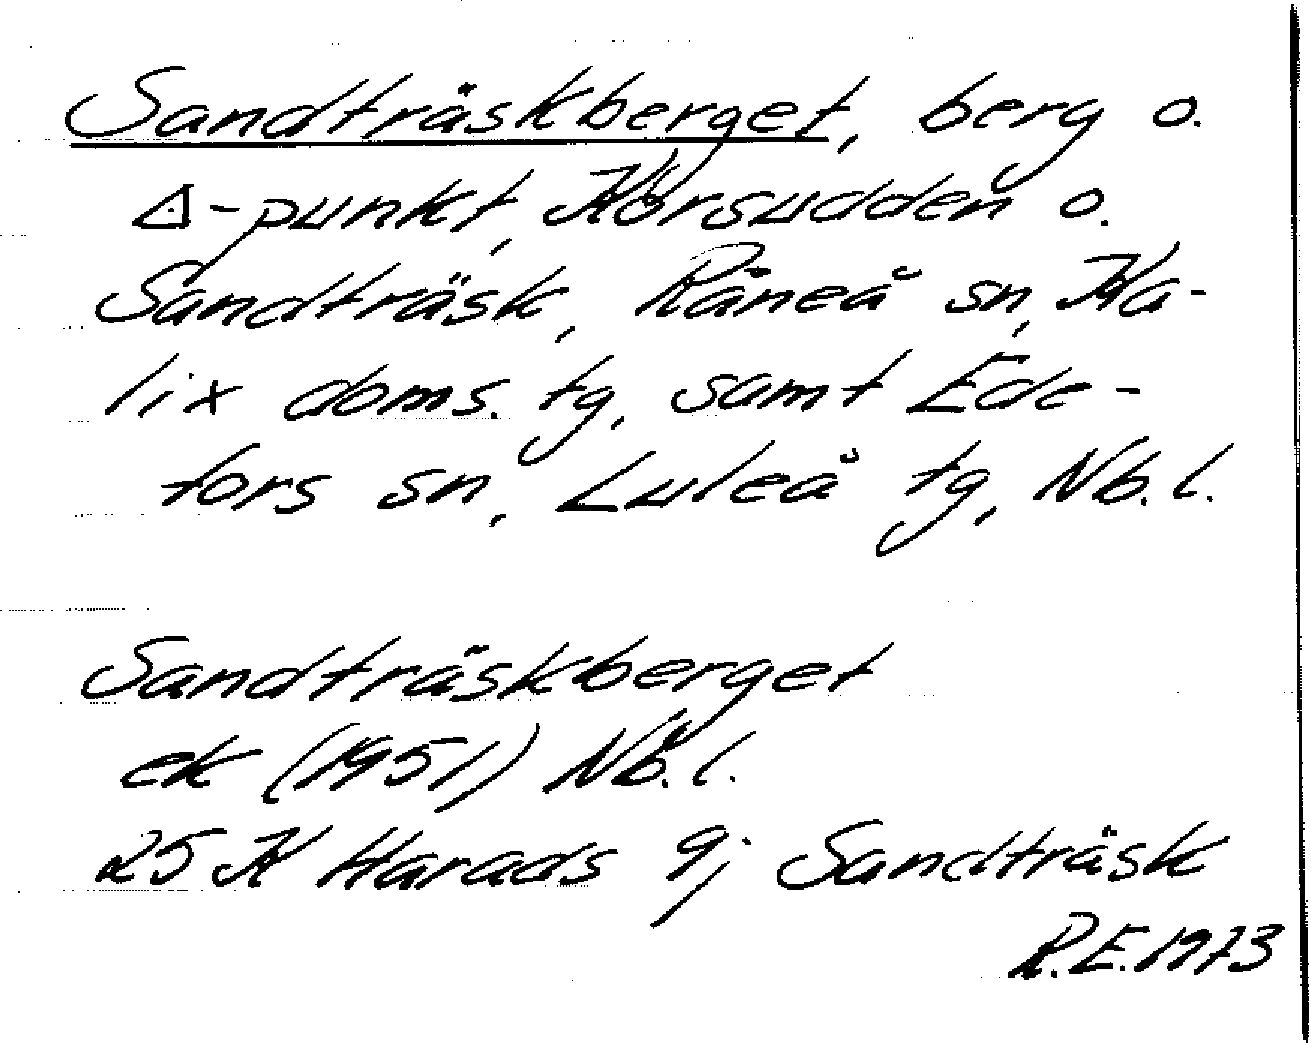 Sandträskberget, berg o.
Δ-punkt, Körsudden o.
Sandträsk, Råneå sn, Ka-
lix doms. tg, samt Ede-
fors sn, Luleå tg, Nb. l.
Sandträskberget
ek (1951) Nb. l.
25 K Harads 9j Sandträsk
R.E. 1973